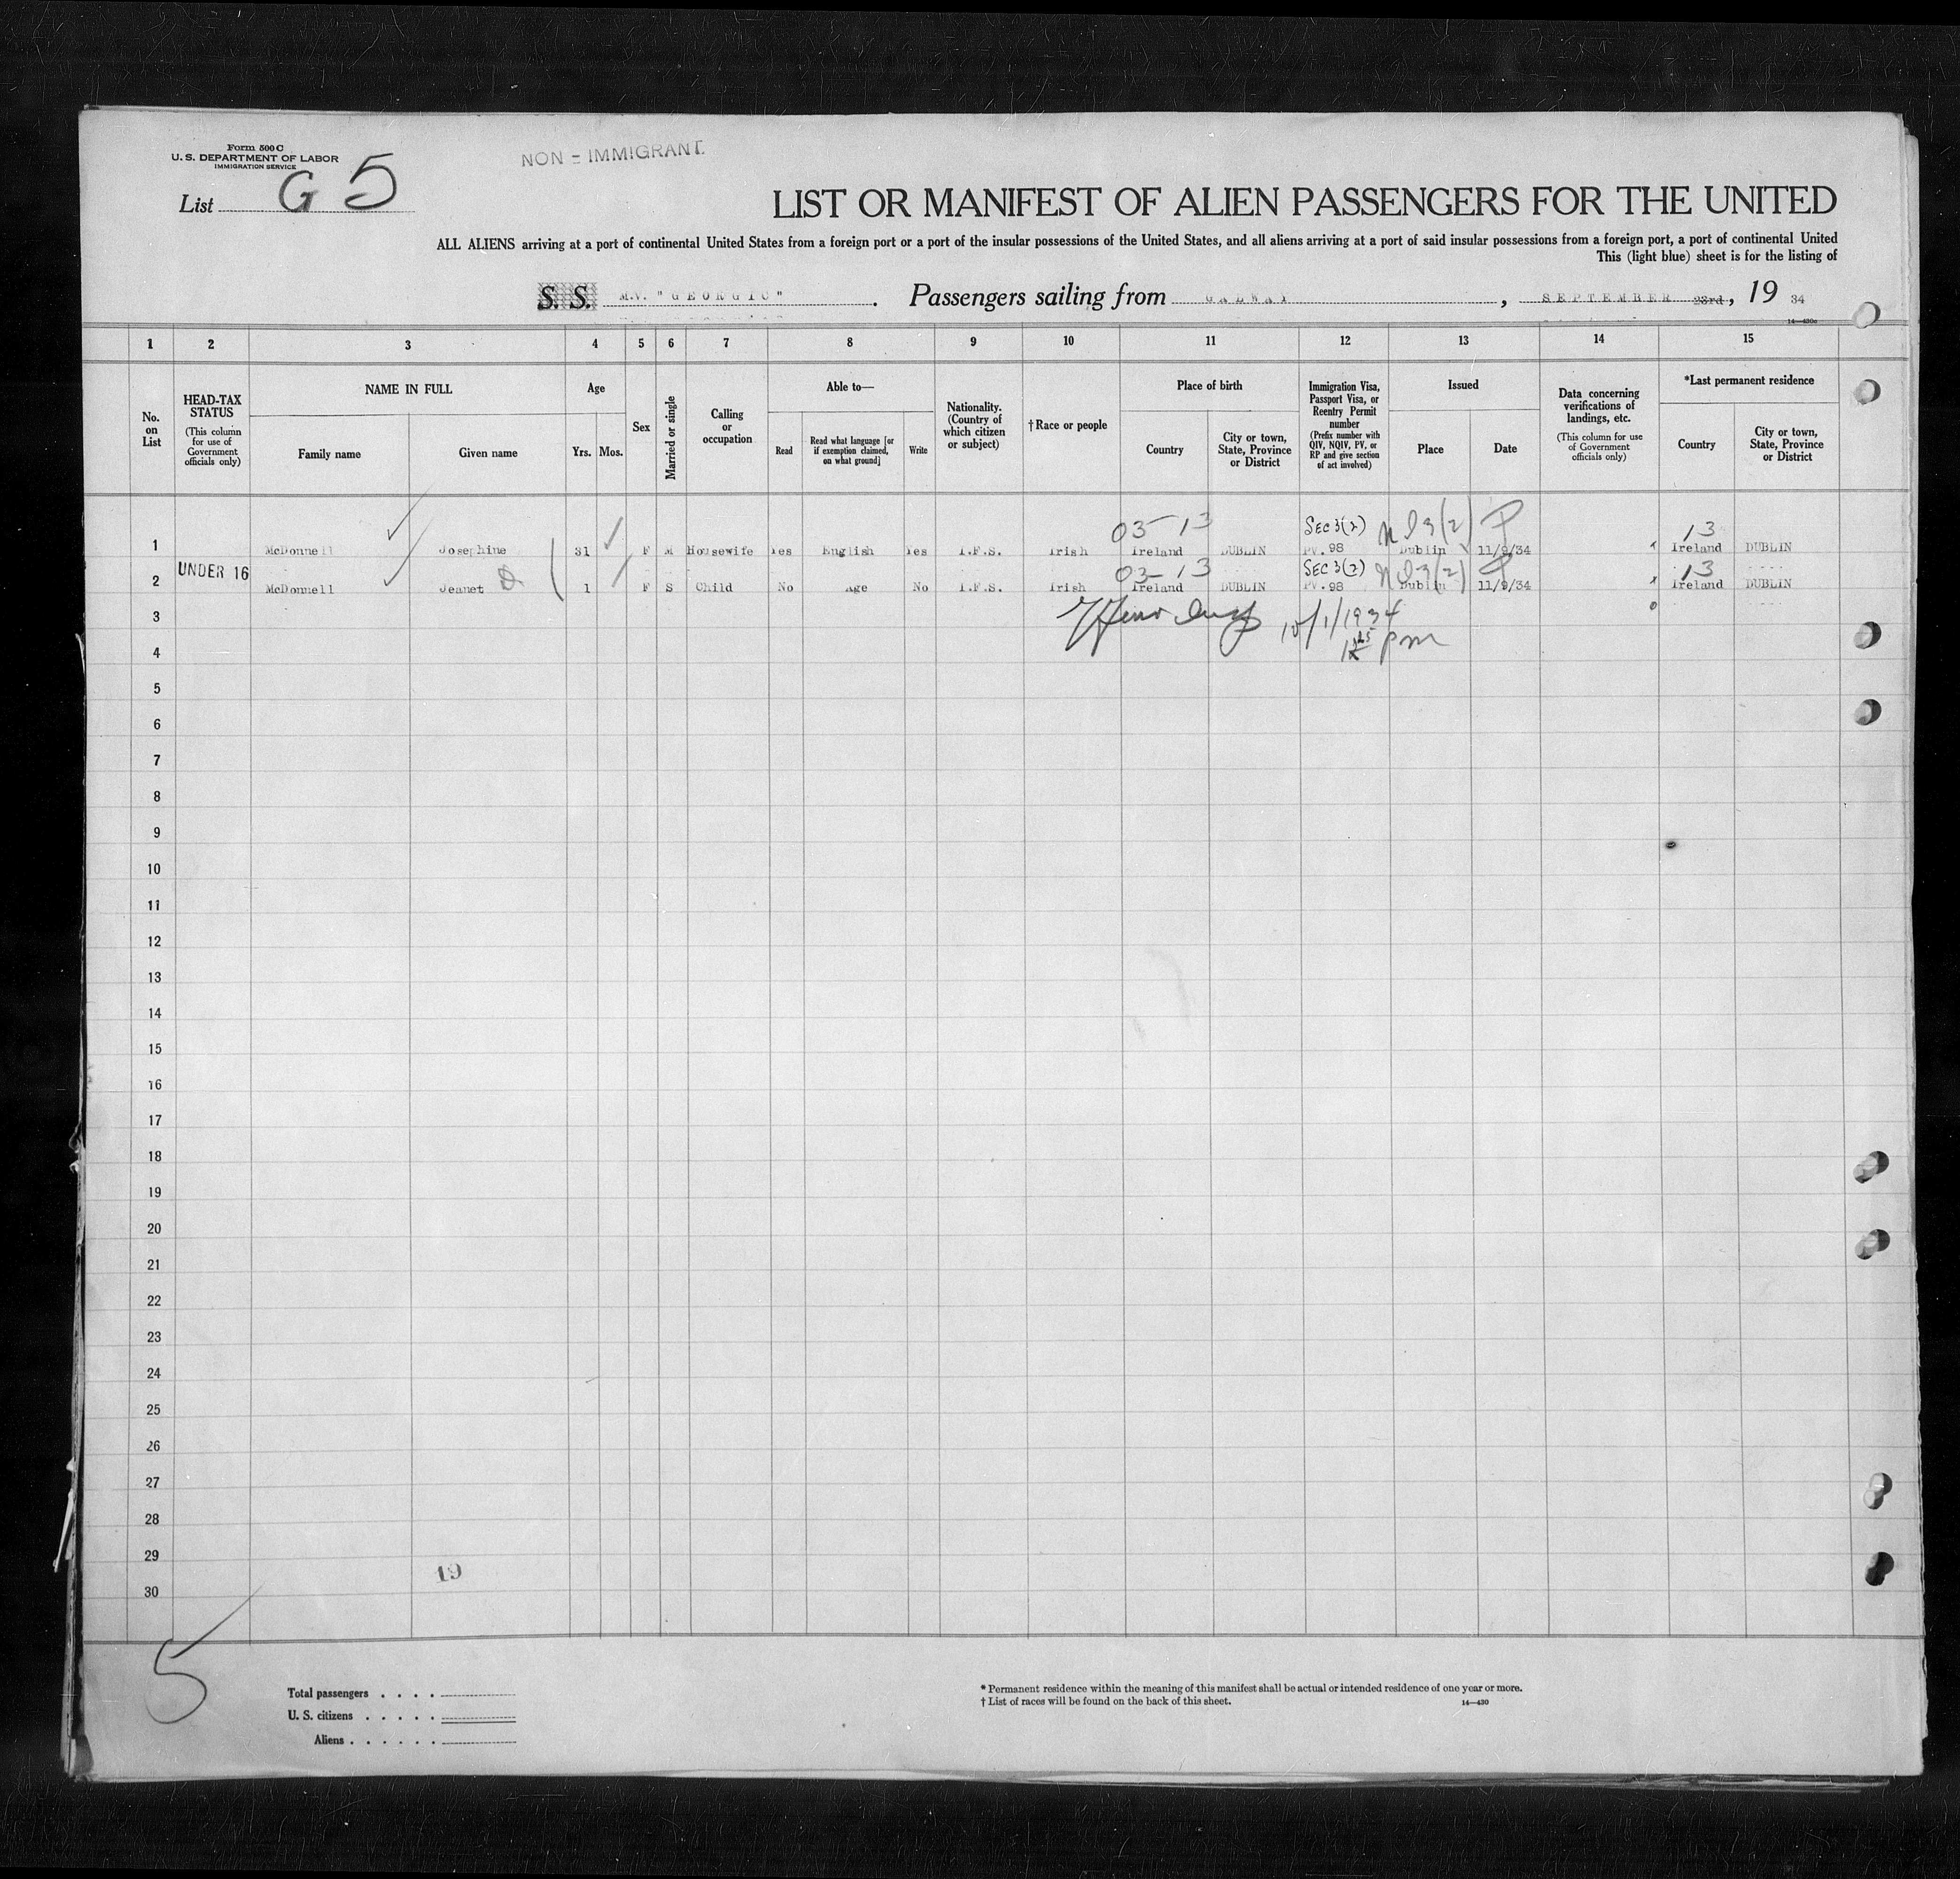 Form 500 C
U. S. DEPARTMENT OF LABOR
IMMIGRATION SERVICE
NON - IMMIGRANT.
List G 5
LIST OR MANIFEST OF ALIEN PASSENGERS FOR THE UNITED
ALL ALIENS arriving at a port of continental United States from a foreign port or a port of the insular possessions of the United States, and all aliens arriving at a port of said insular possessions from a foreign port, a port of continental United
This (light blue) sheet is for the listing of
S. S. M.V. "GEORGIC". Passengers sailing from GALWAY, SEPTEMBER 23rd, 19 34
14—430c
1 2 3 4 5 6 7 8 9 10 11 12 13 14 15
No. on List
HEAD-TAX STATUS
(This column for use of Government officials only)
NAME IN FULL
Family name
Given name
Age
Yrs.
Mos.
Sex
Married or single
Calling or occupation
Able to—
Read
Read what language [or if exemption claimed, on what ground]
Write
Nationality. (Country of which citizen or subject)
†Race or people
Place of birth
Country
City or town, State, Province or District
Immigration Visa, Passport Visa, or Reentry Permit number
(Prefix number with QIV, NQIV, PV, or RP and give section of act involved)
Issued
Place
Date
Data concerning verifications of landings, etc.
(This column for use of Government officials only)
*Last permanent residence
Country
City or town, State, Province or District
03-13 SEC 3(2) 3(2) P 13
1 McDonnell Josephine 31 F M Housewife Yes English Yes I.F.S. Irish Ireland DUBLIN PV.98 Dublin 11/9/34 x Ireland DUBLIN
UNDER 16 03-13 SEC 3(2) 3(2) P 13
2 McDonnell Jeanet 1 F S Child No Age No I.F.S. Irish Ireland DUBLIN PV.98 Dublin 11/9/34 x Ireland DUBLIN
3 10/1/1934
4 pm
5
6
7
8
9
10
11
12
13
14
15
16
17
18
19
20
21
22
23
24
25
26
27
28
29
19
30
5
Total passengers . . . .
U. S. citizens . . . . .
Aliens . . . . . .
* Permanent residence within the meaning of this manifest shall be actual or intended residence of one year or more.
† List of races will be found on the back of this sheet. 14—430